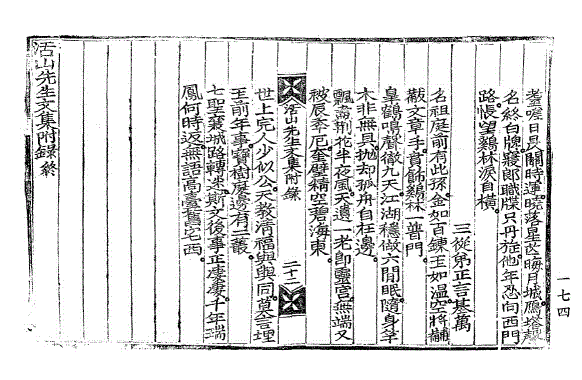 嗟日長關時運曉落星芒晦月城鴈塔聲
名終白牌寢郎職牒只丹旌他年忍向西門
路悵望鷄林淚自橫
三從弟正言基萬
名祖庭前有此孫金如百鍊玉如溫空將黼
黻文章手賁飾鷄林一普門
皐鶴鳴聲徹九天江湖穩做六閒眠隨身竿
木非無具抛却孤舟自在邊
飄壽荊花半夜風天遺一老卽靈宮無端又
被辰黍厄奎璧精空碧海東
活山先生文集附錄
二十二
世上完人少似公天敎淸福與與同莫言埋
玉前年事寶樹庭邊有一叢
七聖襄城路轉迷斯文後事正悽悽千年瑞
鳳何時返無語高臺舊宅西
活山先生文集附錄終
一七四